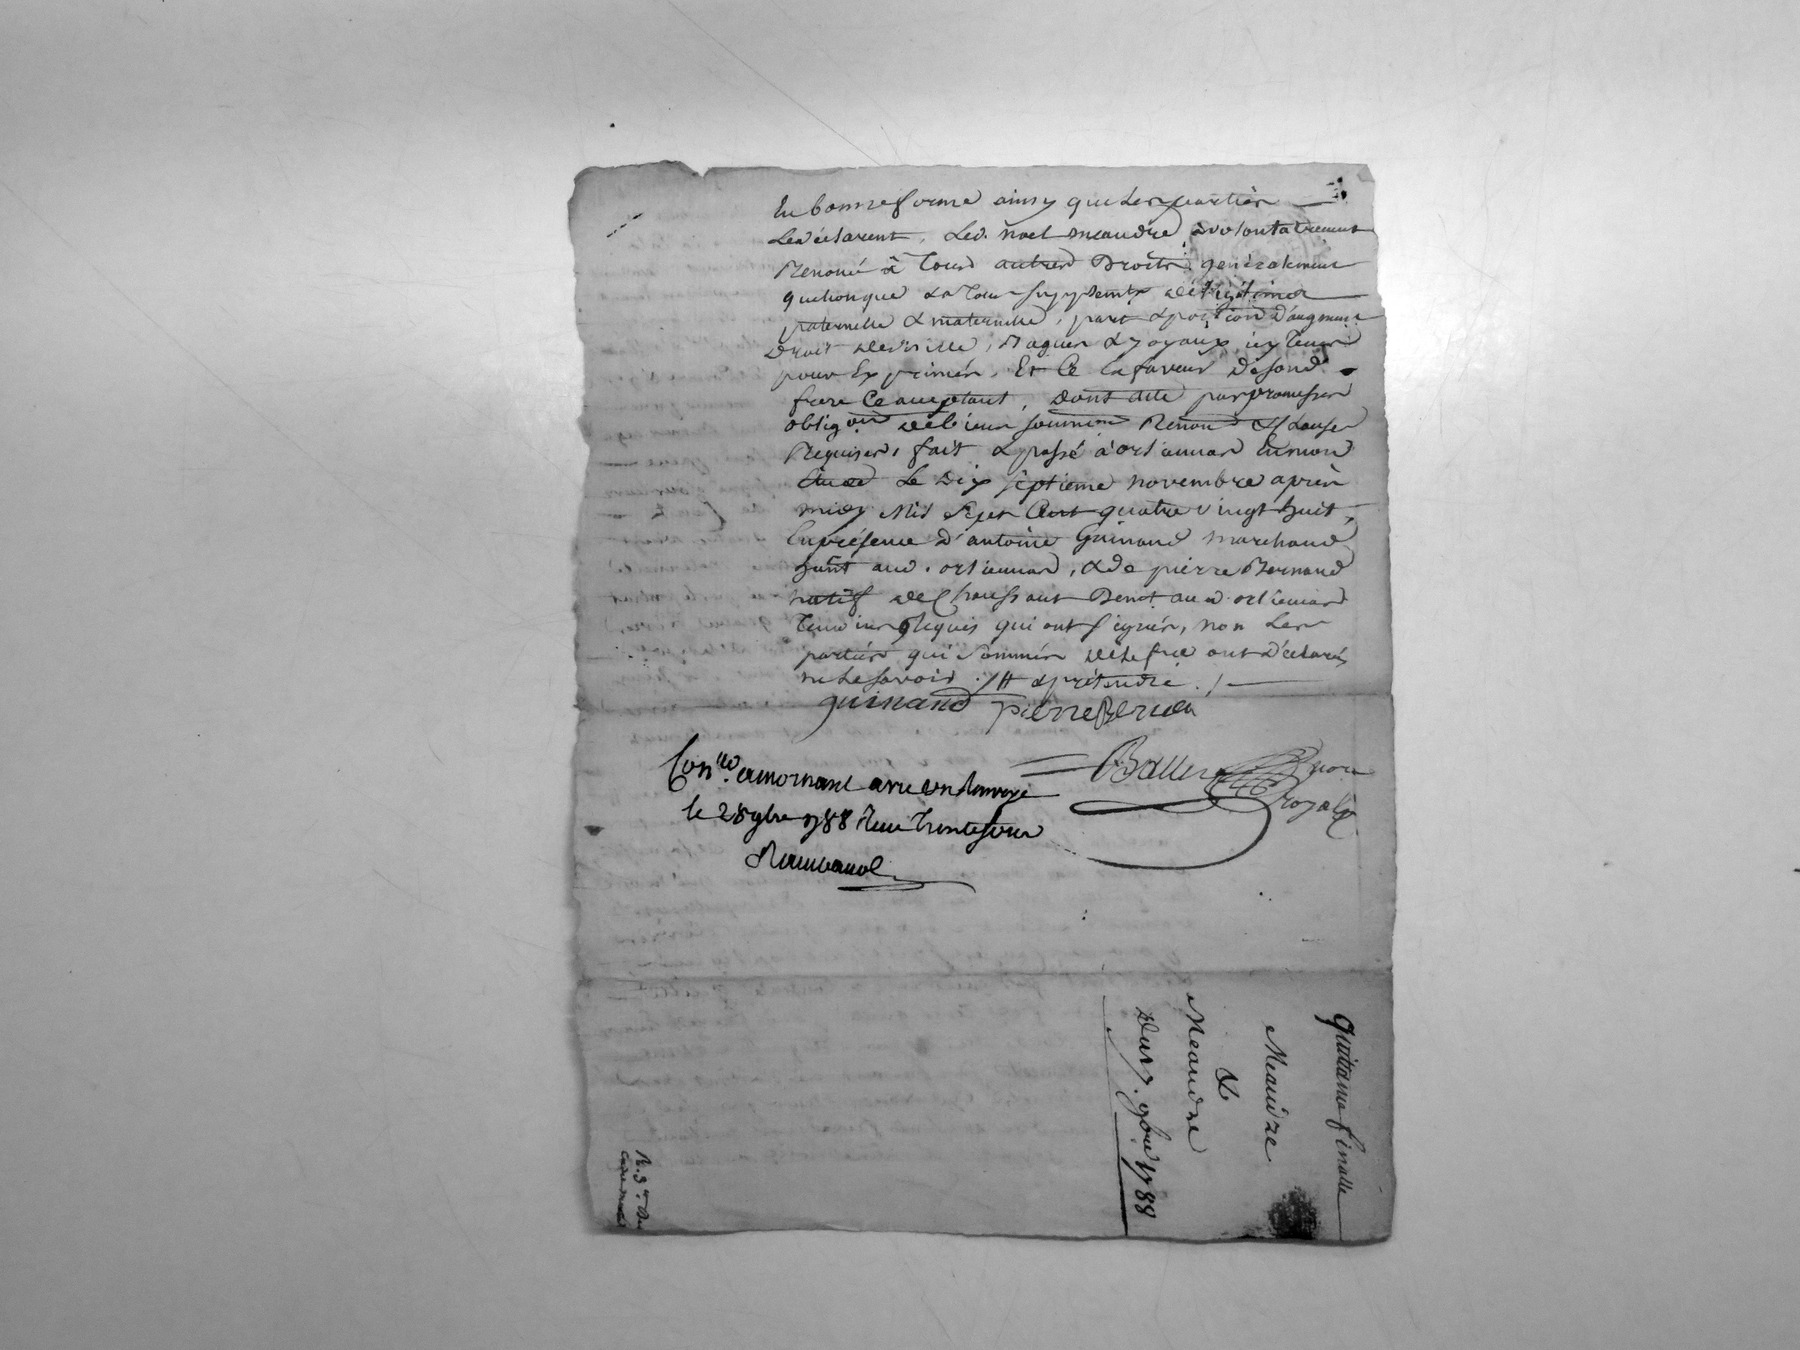 En bonne forme ainsy que les parties
le déclarent, led. noel meaudre a volontairement
Renoncé à tous autres Droits generalement
quelconque & à tous supplements de légitime
paternelle & maternelle, part & portion d'augment
Droit de Bagues & joyaux icy tenus
pour Exprimés. Et Ce En faveur de son d.
frere Ce acceptant, Dont acte par promesses
obligon de biens soumissons Renons & clauses
Requises, fait & passé à orlienas En mon
Etude le Dix septieme novembre après
midy Mil Sept Cent quatre vingt huit,
En présence d'antoine Guinand marchand
hant aud. orlienas, & de pierre Bernand
natif de Chaussant Demt. aud. orlienas
Temoins Requis qui ont signés, non les
parties qui sommés de le fre ont déclarés
ne le savoir ./# & prétendre ./
guinand pierre
Conllé a mornant avec un Renvoye
le 28 9bre 1788 Reçu Trente sous
nore
royal
Quittance finalle
Meaudre
&
Meaudre
Du 17. 9bre 1788